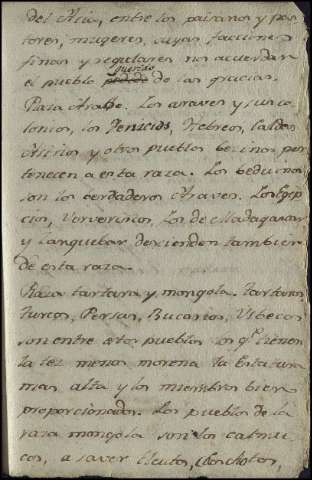 del Asia, entre los paisanos y pas
tores, mugeres, cuyas facciones
finas y regulares nos acuerdan
querido
el pueblo de las gracias.
Raza Arabe. Los araves y sus co
lonias, los Fenicios, Hebreos, Caldeos
Asirios y otros pueblos becinos per
tenecen a esta raza. Los beduinos
son los berdaderos Araves. Los Egip
cios, Ververinos, Los de Madagascar
y Sanguebar descienden tambien
de esta raza.
Raza tartara y mongola. Tartaros
Turcos, Persas, Bucarios, Usbecos
son entre estos pueblos los q.e tienen
la tez menos morena la estatura
mas alta y los miembros bien
proporcionados. Los pueblos de la
raza mongola son los calmu
cos, a saver Eleutos,